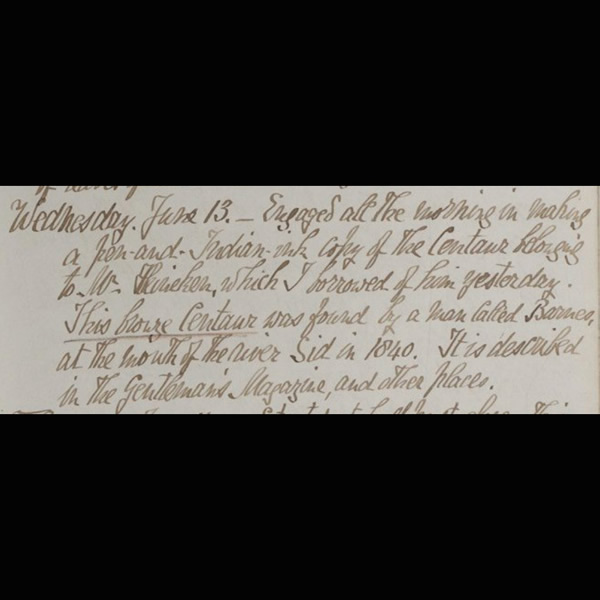 Wednesday. June 13. — Engaged all the morning in making
a pen-and-Indian-ink copy of the Centaur belonging
to Mr. Heineken, which I borrowed of him yesterday.
This bronze Centaur was found by a man called Barnes,
at the mouth of the river Sid in 1840. It is described
in the Gentleman's Magazine, and other places.